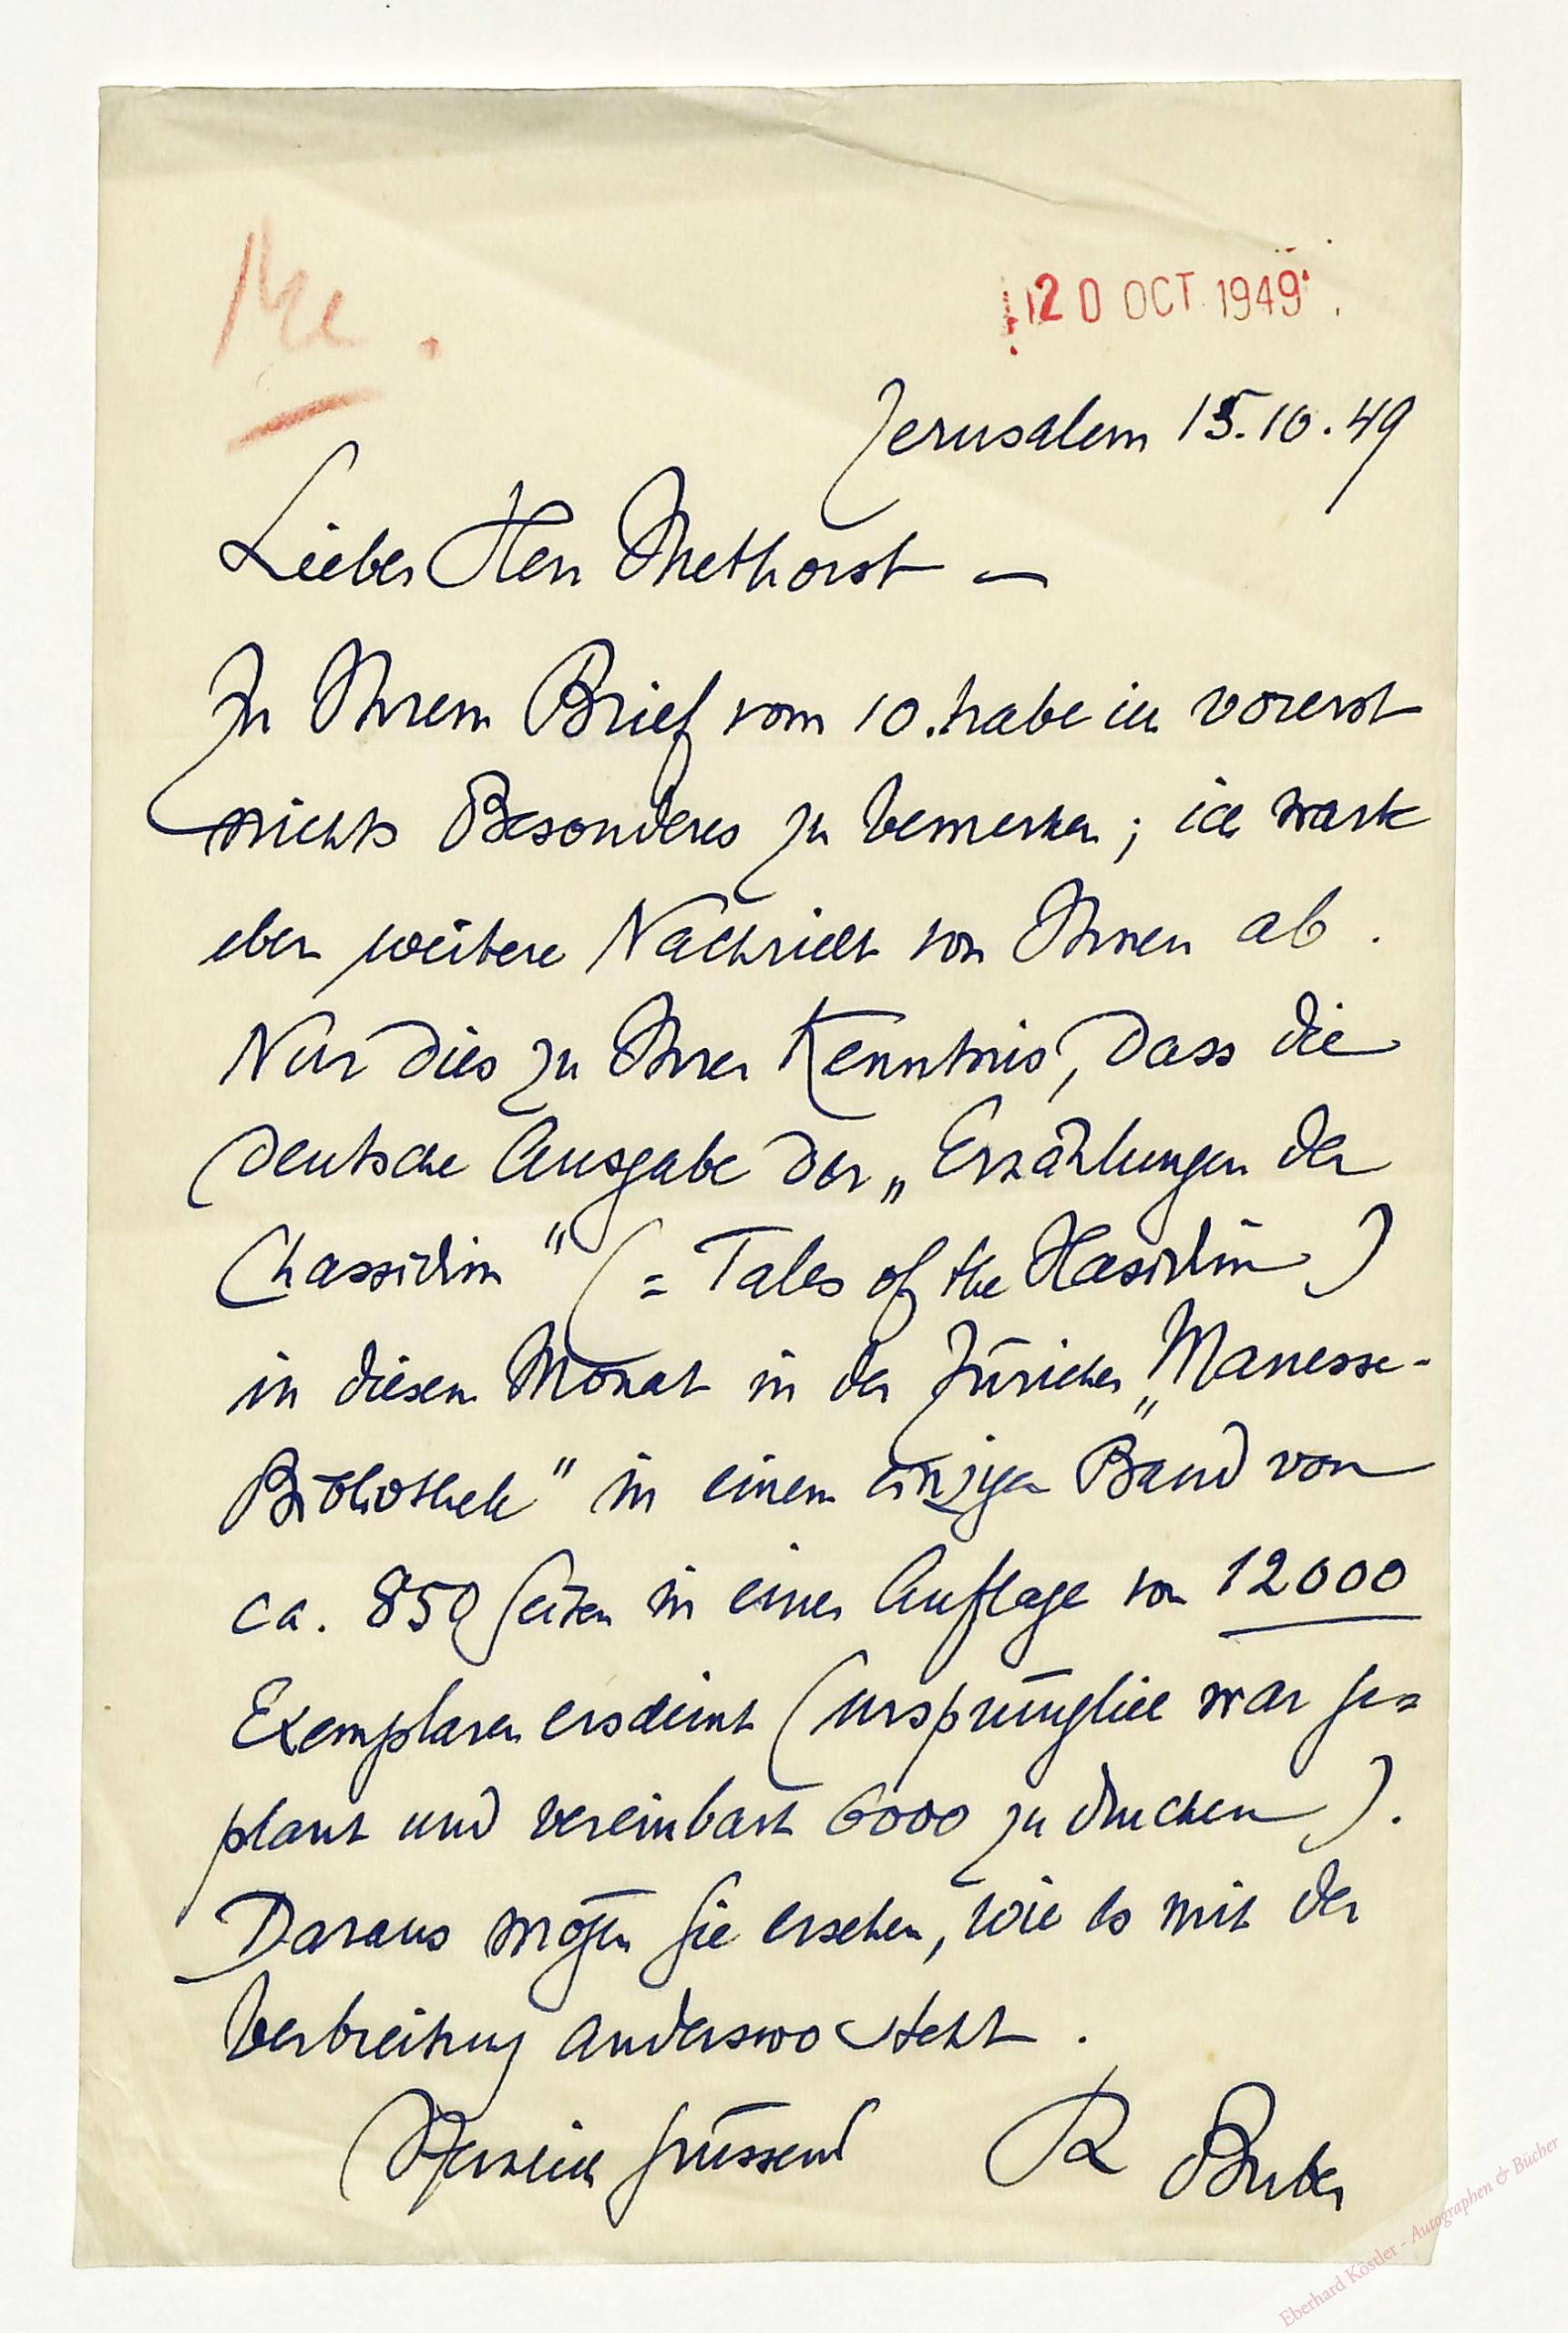 Me.
20 OCT 1949
Jerusalem 15.10.49
Lieber Herr Methorst —
Zu Ihrem Brief vom 10. habe ich vorerst
nichts Besonderes zu bemerken; ich warte
eben weitere Nachricht von Ihnen ab.
Nur dies zu Ihrer Kenntnis, dass die
deutsche Ausgabe der „Erzählungen der
Chassidim" (= Tales of the Hasidim)
in diesem Monat in der Züricher „Manesse-
Bibliothek" in einem einzigen Band von
ca. 850 Seiten in einer Auflage von 12000
Exemplaren erscheint (ursprünglich war ge=
plant und vereinbart 6000 zu drucken).
Daraus mögen Sie ersehen, wie es mit der
Verbreitung anderswo steht.
Herzlich grüssend Buber
Eberhard Köstler - Autographen & Bücher